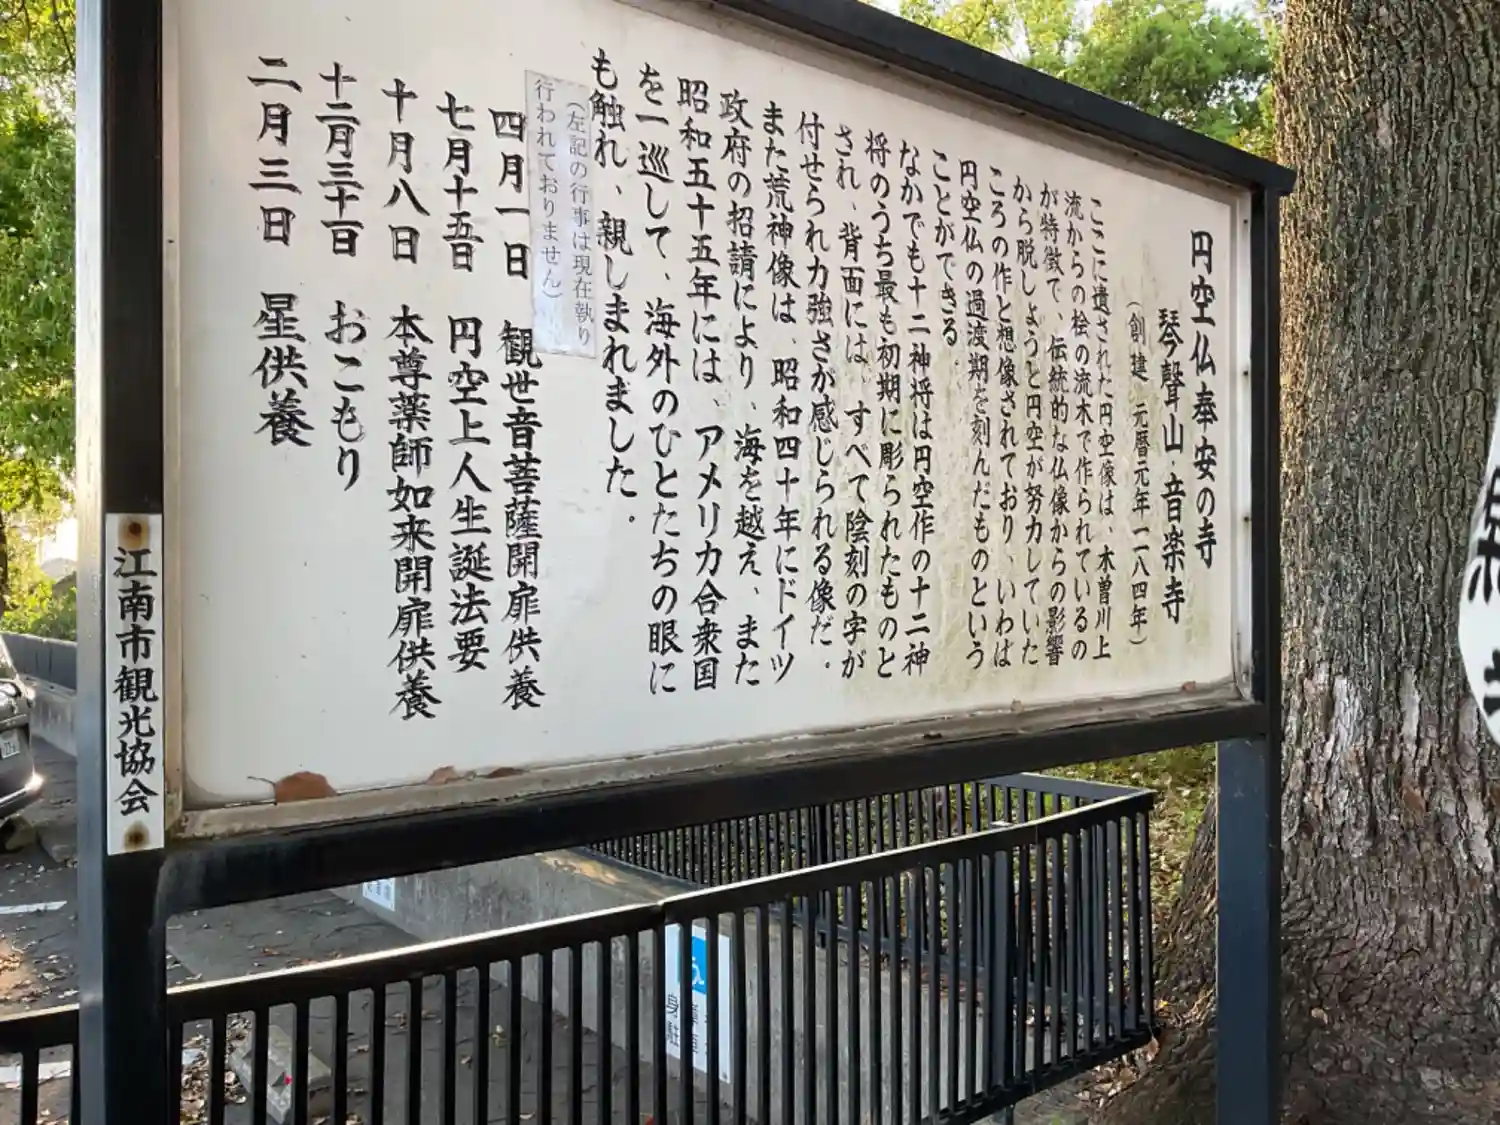 円空仏奉安の寺
琴聲山 音楽寺
(創建 元暦元年一一八四年)
ここに遺された円空像は、木曽川上
流からの桧の流木で作られているの
が特徴で、伝統的な仏像からの影響
から脱しようと円空が努力していた
ころの作と想像されており、いわば
円空仏の過渡期を刻んだものという
ことができる.
なかでも十二神将は円空作の十二神
将のうち最も初期に彫られたものと
され、背面には、すべて陰刻の字が
付せられ力強さが感じられる像だ.
また荒神像は、昭和四十年にドイツ
政府の招請により、海を越え、また
昭和五十五年には、アメリカ合衆国
を一巡して、海外のひとたちの眼に
も触れ、親しまれました.
(左記の行事は現在執り
行われておりません)
四月一日 観世音菩薩開扉供養
七月十五日 円空上人生誕法要
十月八日 本尊薬師如来開扉供養
十二月三十日 おこもり
二月三日 星供養
江南市観光協会